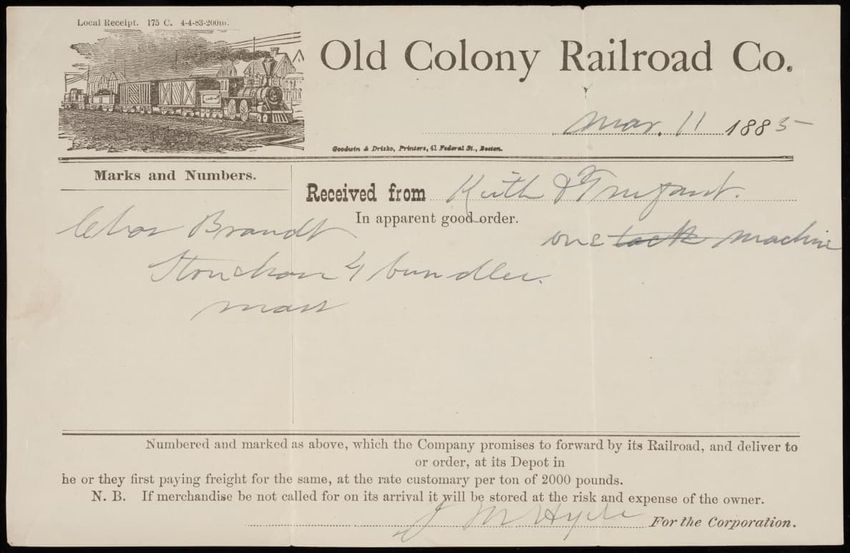 Local Receipt. 175 C. 4-4-83-200m.
Old Colony Railroad Co.
Mar. 11 1885
Goodwin & Drisko, Printers, 41 Federal St., Boston.
Marks and Numbers.
Received from Keith & Trufant.
In apparent good order.
one tack machine
Chas Brandt
Stoneham 4 bundles.
Mass
Numbered and marked as above, which the Company promises to forward by its Railroad, and deliver to
or order, at its Depot in
he or they first paying freight for the same, at the rate customary per ton of 2000 pounds.
N. B. If merchandise be not called for on its arrival it will be stored at the risk and expense of the owner.
J M Hyde For the Corporation.